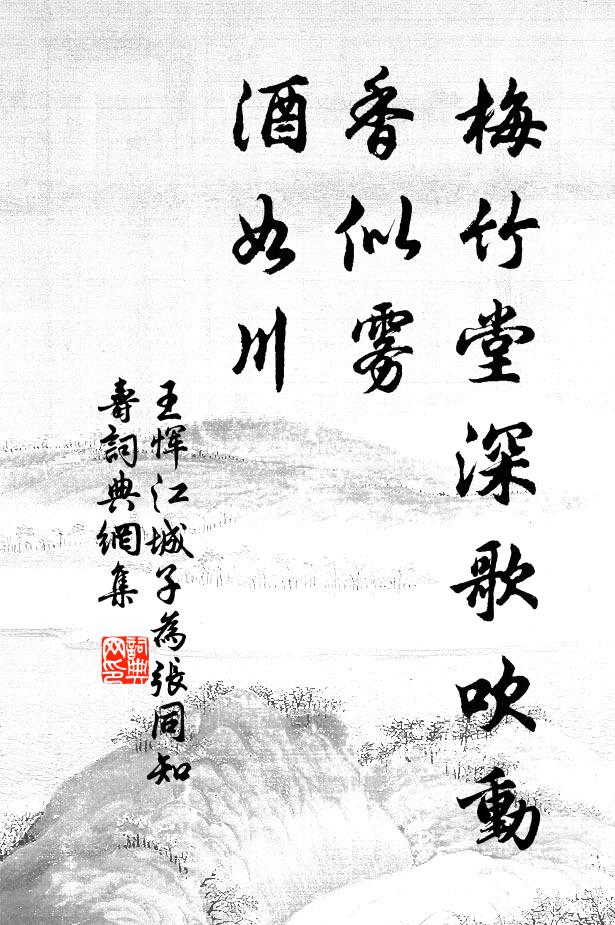 梅竹堂深歌吹動
香似雾
酒如川
王惲江城子為張同知
壽詞典網集
詞典
网印